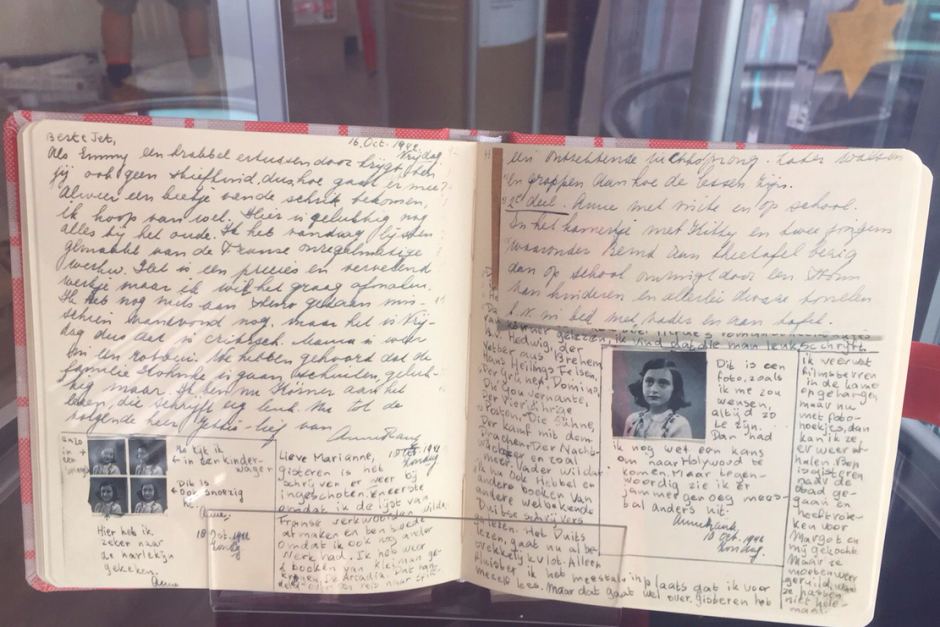 Beste Jet,
16. Oct. 1942
Vrijdag
Als Emmy een krabbel ertussendoor krijgt, ben
jij ook geen stiefkind, dus hoe gaat er mee?
Alweer een beetje van de schrik bekomen,
ik hoop van wel. Hier is gelukkig nog
alles bij het oude. Ik heb vandaag lijsten
gemaakt van de Franse onregelmatige
werkw. Het is een precies en vervelend
werkje maar ik wil het graag afmaken.
Ik heb nog niets aan steno gedaan mis-
schien vanavond nog, maar het is Vrij-
dag dus dat is critisch. Mama is weer
in een rotbui. We hebben gehoord dat de
familie is gaan schuilen, geluk-
kig maar. Ik ben nu Körner aan het
lezen, die schrijft erg leuk. Nu tot de
volgende keer liefs van
Anne Frank
in
Na kijk ik
in een kinder-
wagen
Dit is
ook snoezig
hè.
Anne.
18 Oct. 1942
Zondag
Hier heb ik
zeker naar
de harlekijn
gekeken.
Anne
Lieve Marianne,
18 Oct. 1942
Zondag
gisteren is het
schrijven er weer bij
ingeschoten. Eneerste
omdat ik de lijst van
Franse werkwoorden wilde
afmaken en ten twede
omdat ik ook nog ander
werk had. Ik heb weer
2 boeken van Kleiman ge-
kregen. De Arcadia. Dat
een ontzettende luchtsprong. Later walsen
en grappen aan hoe de lessen zijn.
2e deel. Anne met visite en op school.
In het kamertje met Kitty en twee jongens
waaronder Bernd aan theetafel bezig
dan op school omringd door een
van kinderen en allerlei dwaze
b.v. in bed met vader en aan tafel.
gelezen, ik vind dat die man leuk schrijft.
b.v. Hedwig, der
Vetter aus Bremen
Hans Heilings Felsen,
Der Grüne Domino,
Die Gouvernante,
Der Vierjährige
Posten, Die Sühne,
Der Kampf mit dem
Drachen, Der Nacht-
wächter en zoal
meer. Vader wil dat
ik nu ook Hebbel en
andere boeken van
andere welbekende
Duitse schrijvers
ga lezen. Het Duits
lezen, gaat nu al be-
trekkelijk vlot. Alleen
fluister ik het meestal inplaats dat ik voor
mezelf lees. Maar dat gaat wel over. gisteren heb
Dit is een
foto, zoals
ik me zou
wensen,
altijd zo
te zijn.
Dan had
ik nog wel een kans
om naar Holywood te
komen. Maar tegen-
woordig zie ik er
jammer genoeg mees-
tal anders uit.
Anne Frank.
18 Oct. 1942
Zondag.
ik veel wat
filmsterren
in de kamer
opgehangen
maar nu
met foto-
hoekjes, dan
kan ik ze
er weer af
halen. Bep
is gisteren
naar de
stad ge-
gaan en
heeft rok-
ken voor
Margot en
mij gekocht.
Maar ze
moeten weer
geruild,
ze passen
niet hele-
maal.